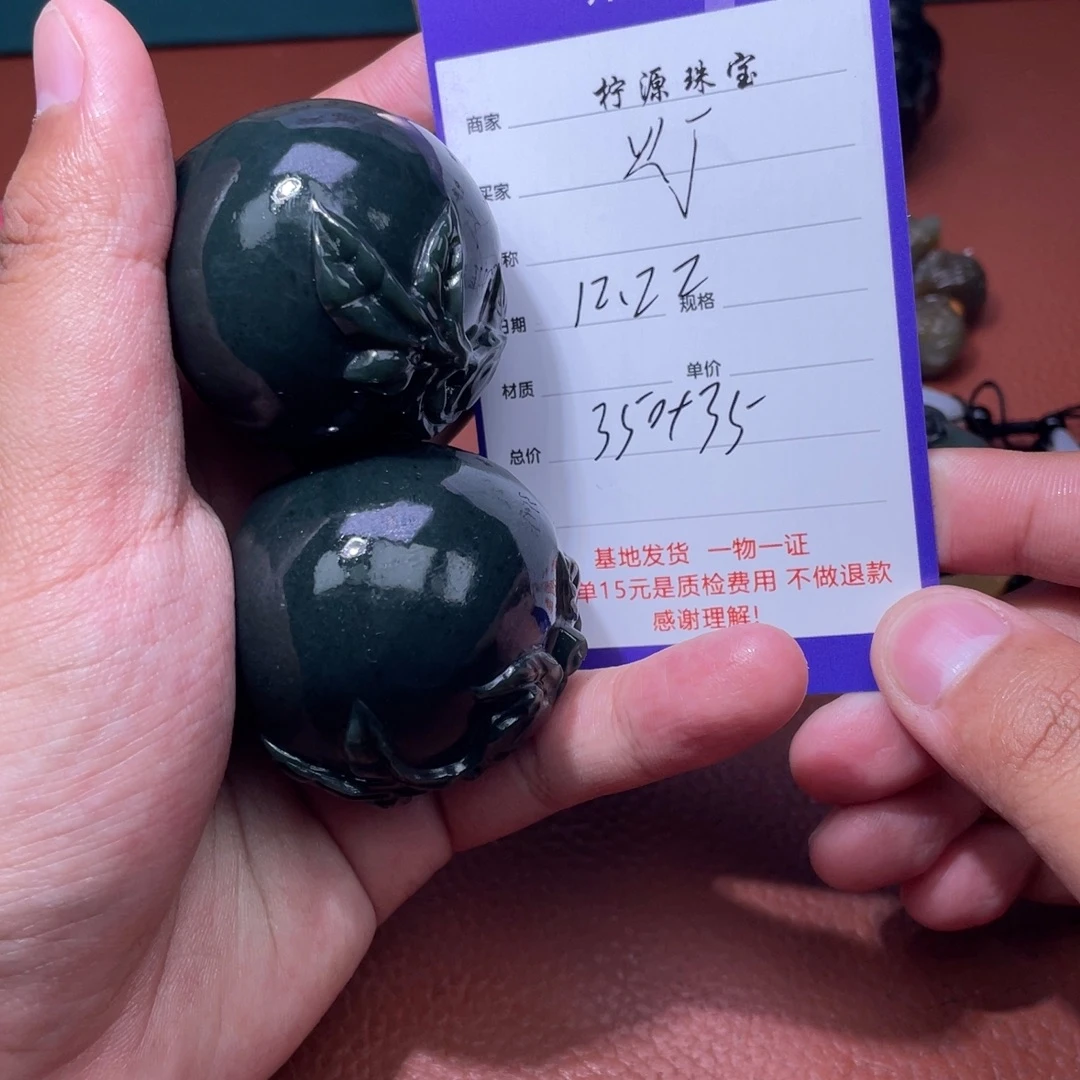 商家 柠源珠宝
买家
称
日期 12.22 规格
材质 单价
总价 350+35
基地发货 一物一证
单15元是质检费用 不做退款
感谢理解!